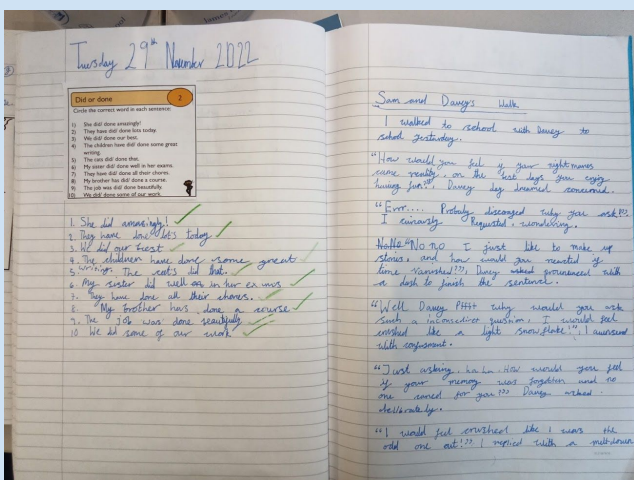 Tuesday 29th November 2022
Did or done
2
Circle the correct word in each sentence:
1) She did/ done amazingly!
2) They have did/ done lots today.
3) We did/ done our best.
4) The children have did/ done some great
writing.
5) The cats did/ done that.
6) My sister did/ done well in her exams.
7) They have did/ done all their chores.
8) My brother has did/ done a course.
9) The job was did/ done beautifully.
10) We did/ done some of our work.
1. She did amazingly!
2 They have done lots today
3. We did our best
4. The children have done some great
5 writing. The cats did that.
6. My sister did well in her exams.
7. They have done all their chores.
8. My brother has done a course
9. The job was done beautifully
10 We did some of our work
Sam and Davey's Walk
I walked to school with Davey to
school yesterday.
"How would you feel if your nightmares
came reality, on the last days you enjoy
having fun?" Davey day dreamed concerned.
"Errr.... Probaly why you ask?"
I Requested, wondering.
"No no I just like to make up
stories, and how would you if
time vanished?" Davey asked with
a dash to finish the sentence.
"Well Davey Pffft why would you ask
such a question, I would feel
crushed like a light snow flake!" I
with
"Just asking, ha ha. How would you feel
if your memory was forgotten and no
one cared for you?" Davey asked
"I would feel crushed like I was the
odd one out!" I replied with a meltdown